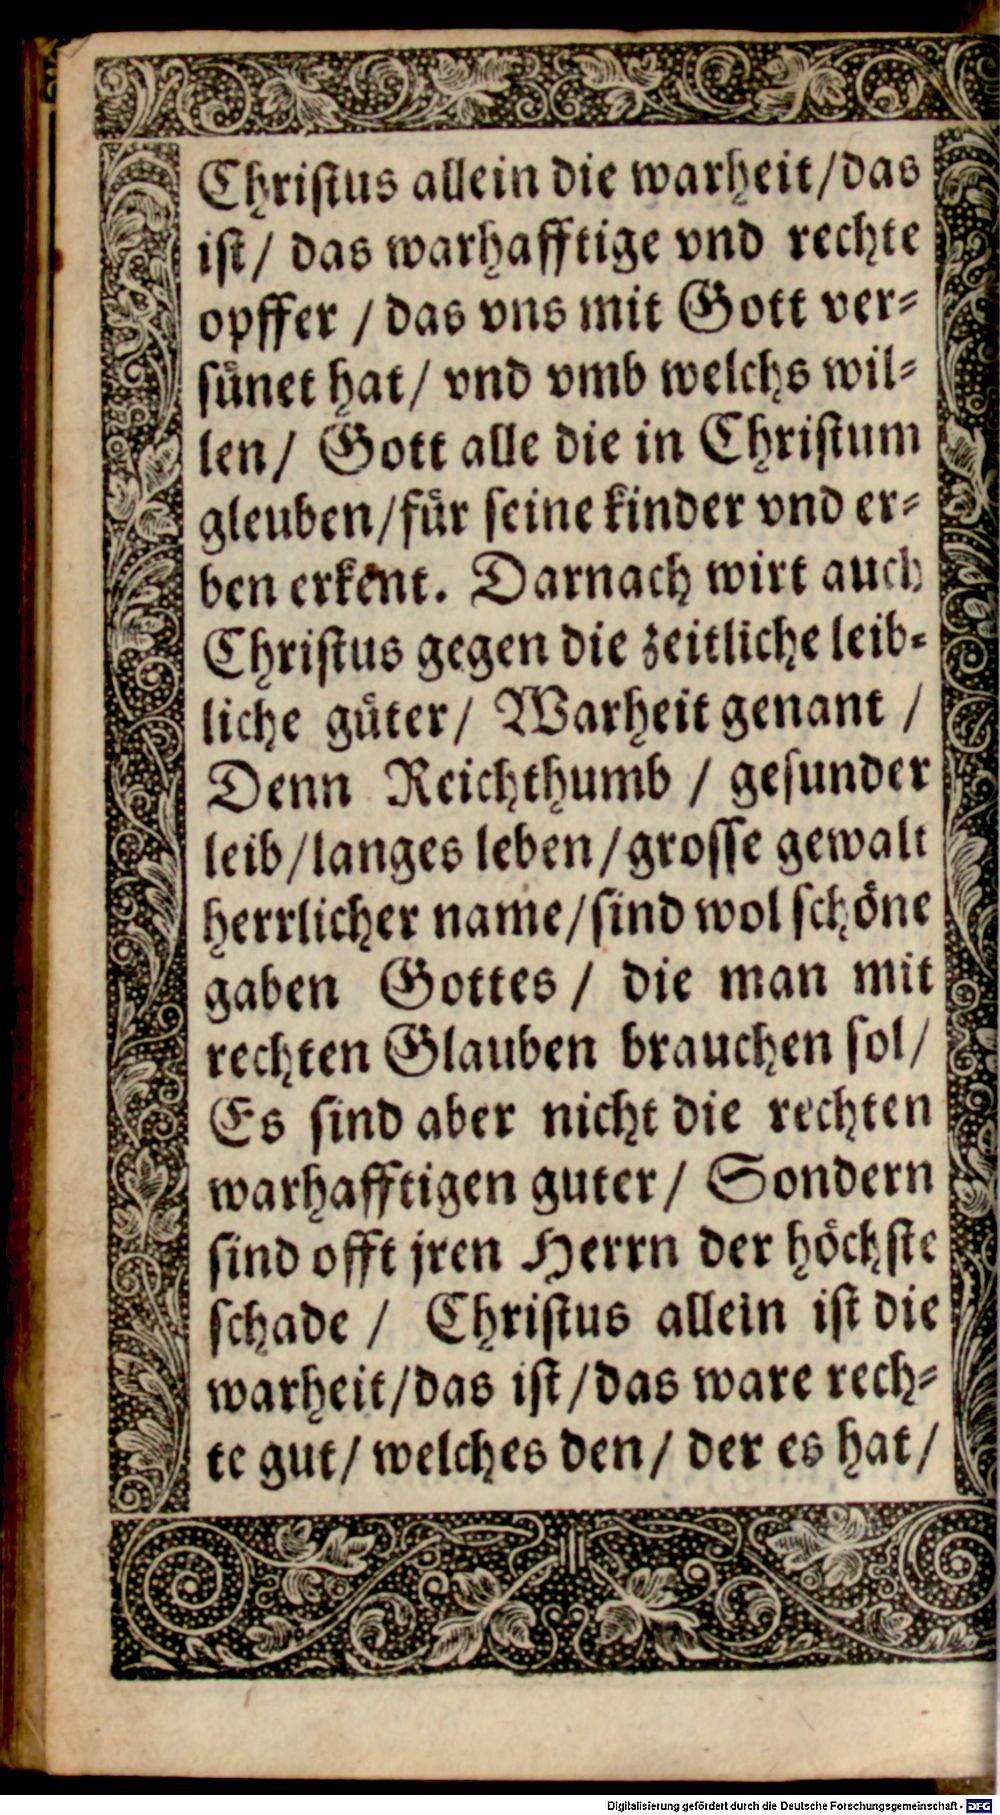 Christus allein die warheit/das
ist/ das warhafftige vnd rechte
opffer / das vns mit Gott ver⸗
sünet hat/ vnd vmb welchs wil⸗
len/ Gott alle die in Christum
gleuben/für seine kinder vnd er⸗
ben erkent. Darnach wirt auch
Christus gegen die zeitliche leib⸗
liche güter/ Warheit genant /
Denn Reichthumb / gesunder
leib/langes leben/grosse gewalt
herrlicher name/sind wol schöne
gaben Gottes / die man mit
rechten Glauben brauchen sol/
Es sind aber nicht die rechten
warhafftigen guter/ Sondern
sind offt jren Herrn der höchste
schade / Christus allein ist die
warheit/das ist/das ware rech⸗
te gut/ welches den/ der es hat/
Digitalisierung gefördert durch die Deutsche Forschungsgemeinschaft - DFG